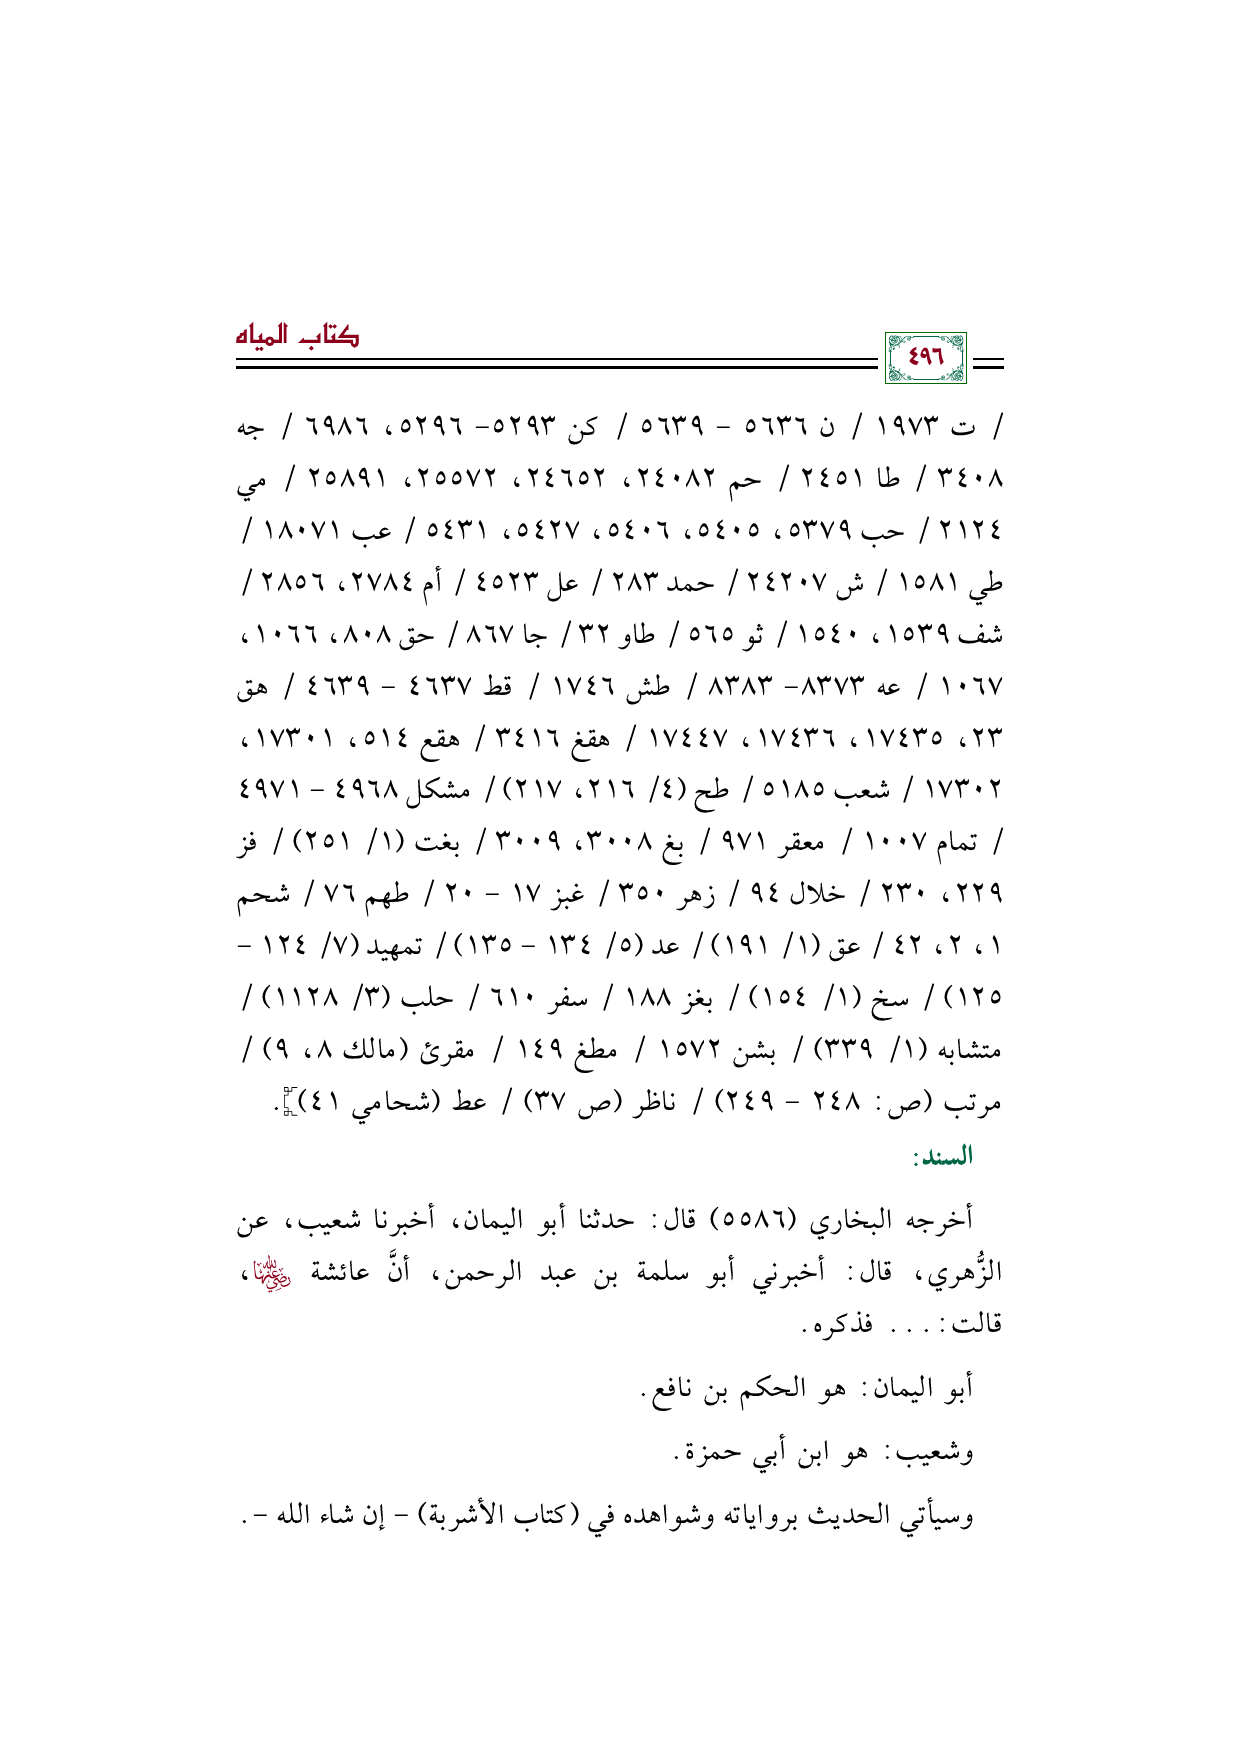 كتاب المياه
٤٩٦
/ ت ١٩٧٣ / ن ٥٦٣٦ - ٥٦٣٩ / كن ٥٢٩٣- ٥٢٩٦، ٦٩٨٦ / جه
٣٤٠٨ / طا ٢٤٥١ / حم ٢٤٠٨٢، ٢٤٦٥٢، ٢٥٥٧٢، ٢٥٨٩١ / مي
٢١٢٤ / حب ٥٣٧٩، ٥٤٠٥، ٥٤٠٦، ٥٤٢٧، ٥٤٣١ / عب ١٨٠٧١ /
طي ١٥٨١ / ش ٢٤٢٠٧ / حمد ٢٨٣ / عل ٤٥٢٣ / أم ٢٧٨٤، ٢٨٥٦ /
شف ١٥٣٩، ١٥٤٠ / ثو ٥٦٥ / طاو ٣٢ / جا ٨٦٧ / حق ٨٠٨، ١٠٦٦،
١٠٦٧ / عه ٨٣٧٣- ٨٣٨٣ / طش ١٧٤٦ / قط ٤٦٣٧ - ٤٦٣٩ / هق
٢٣، ١٧٤٣٥، ١٧٤٣٦، ١٧٤٤٧ / هقغ ٣٤١٦ / هقع ٥١٤، ١٧٣٠١،
١٧٣٠٢ / شعب ٥١٨٥ / طح (٤/ ٢١٦، ٢١٧) / مشكل ٤٩٦٨ - ٤٩٧١
/ تمام ١٠٠٧ / معقر ٩٧١ / بغ ٣٠٠٨، ٣٠٠٩ / بغت (١/ ٢٥١) / فز
٢٢٩، ٢٣٠ / خلال ٩٤ / زهر ٣٥٠ / غبز ١٧ - ٢٠ / طهم ٧٦ / شحم
١، ٢، ٤٢ / عق (١/ ١٩١) / عد (٥/ ١٣٤ - ١٣٥) / تمهيد (٧/ ١٢٤ -
١٢٥) / سخ (١/ ١٥٤) / بغز ١٨٨ / سفر ٦١٠ / حلب (٣/ ١١٢٨) /
متشابه (١/ ٣٣٩) / بشن ١٥٧٢ / مطغ ١٤٩ / مقرئ (مالك ٨، ٩) /
مرتب (ص: ٢٤٨ - ٢٤٩) / ناظر (ص ٣٧) / عط (شحامي ٤١)].
السند:
أخرجه البخاري (٥٥٨٦) قال: حدثنا أبو اليمان، أخبرنا شعيب، عن
الزُّهري، قال: أخبرني أبو سلمة بن عبد الرحمن، أنَّ عائشة رضي الله عنها،
قالت: . . . فذكره.
أبو اليمان: هو الحكم بن نافع.
وشعيب: هو ابن أبي حمزة.
وسيأتي الحديث برواياته وشواهده في (كتاب الأشربة) - إن شاء الله -.